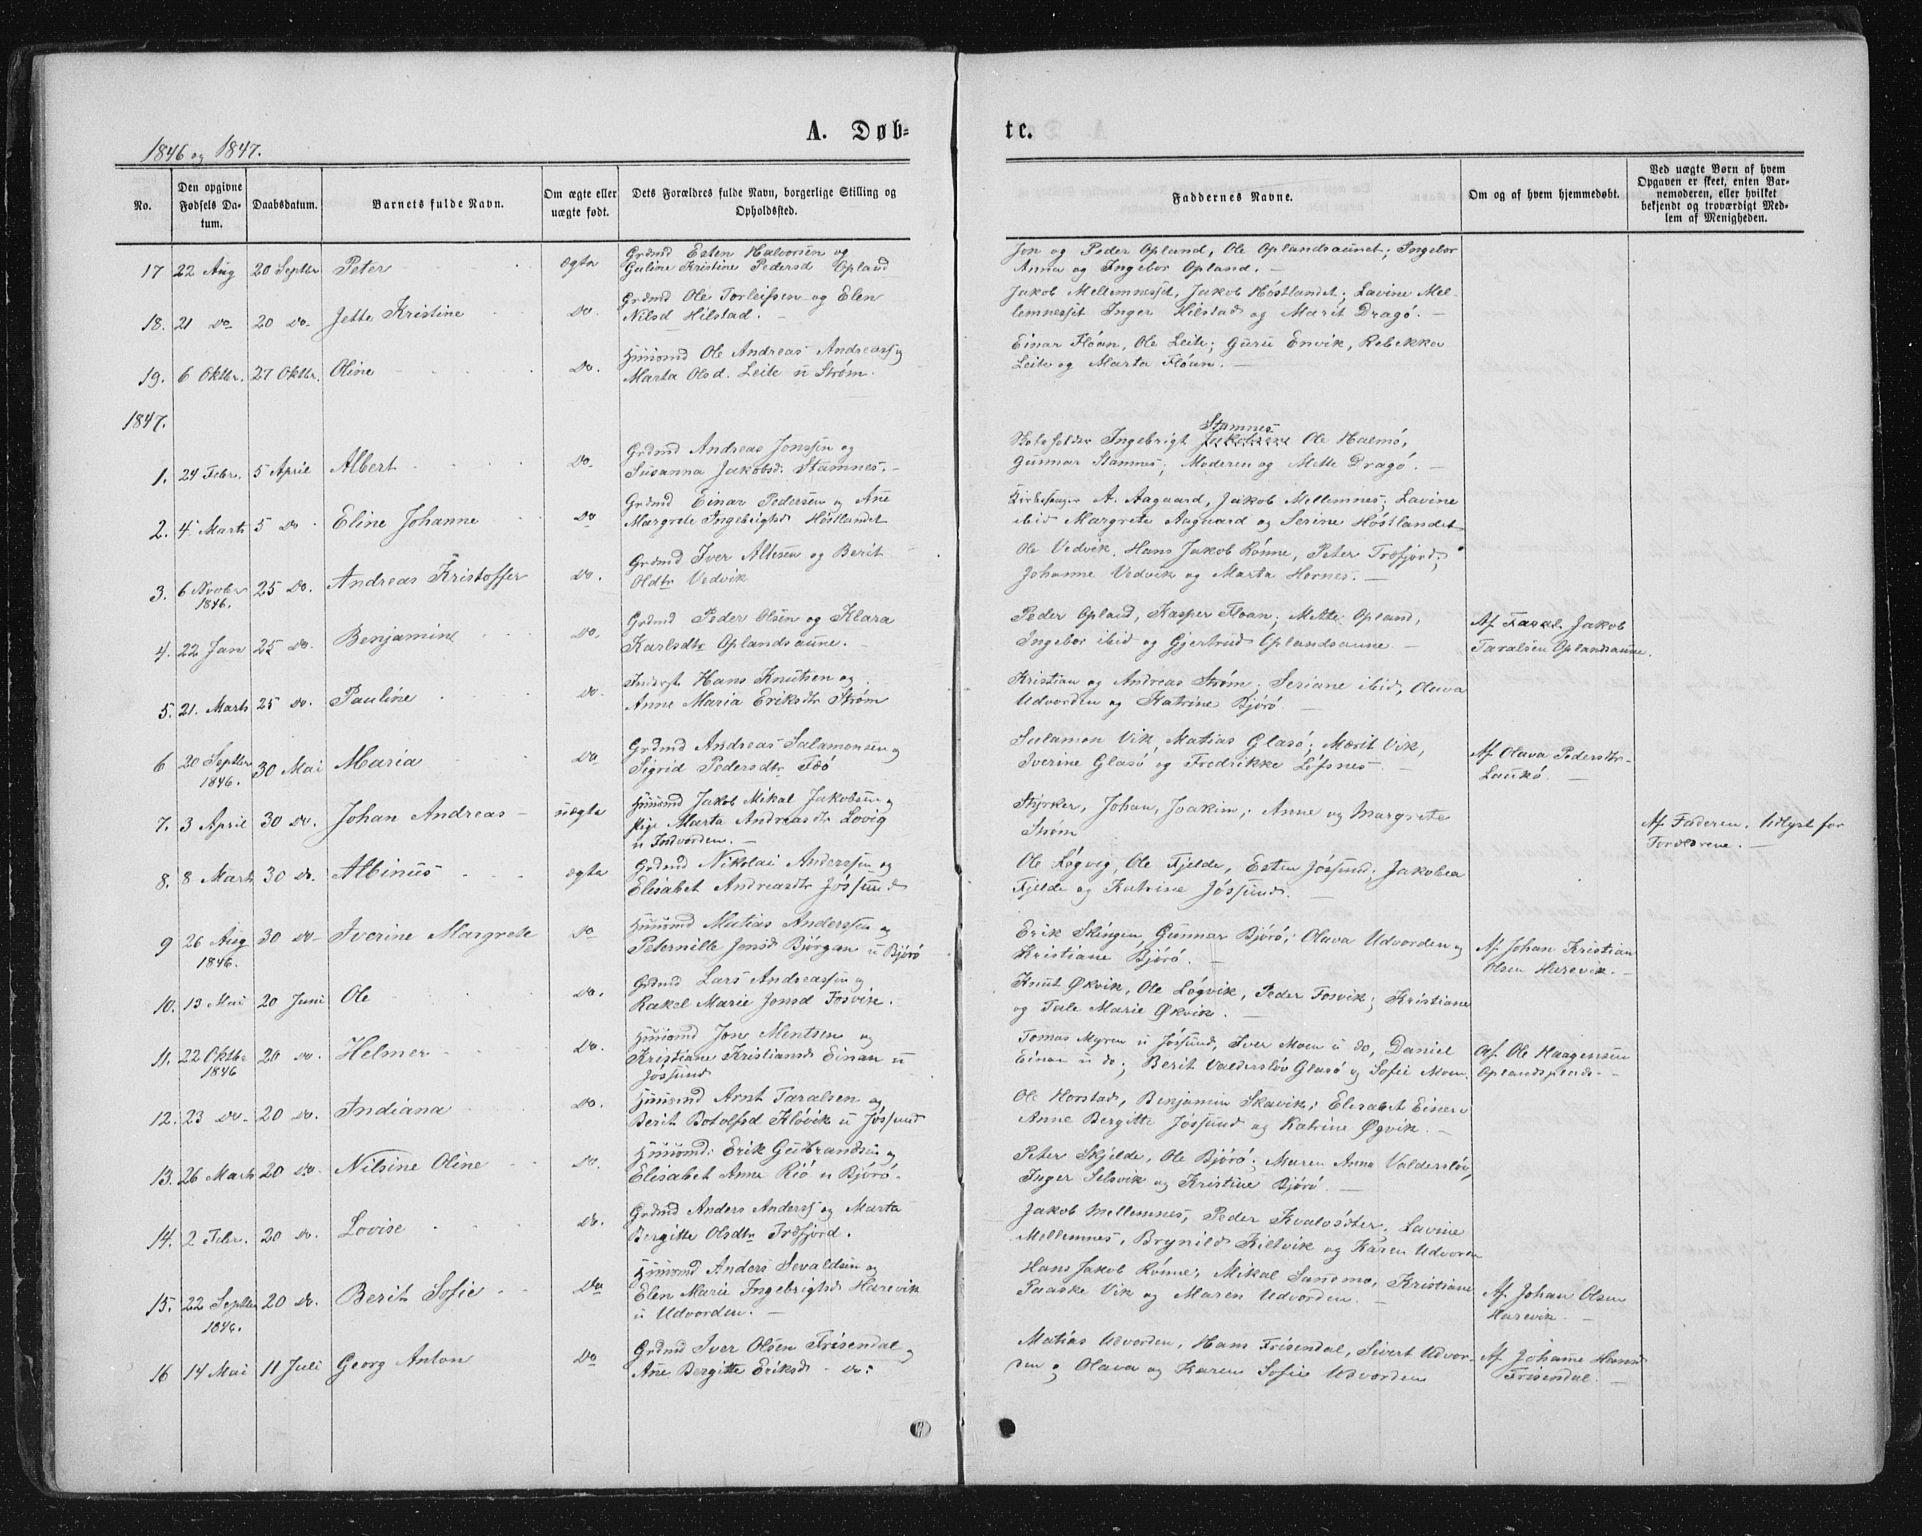 1846 og 1847.
A. Døb-
te.
No.
Den opgivne Fødsels Datum.
Daabsdatum.
Barnets fulde Navn.
Om ægte eller uægte født.
Dets Forældres fulde Navn, borgerlige Stilling og Opholdssted.
Faddernes Navne.
Om og af hvem hjemmedøbt.
Ved uægte Børn af hvem Opgaven er skeet, enten Barnemoderen, eller hvilket bekjendt og troværdigt Medlem af Menigheden.
17 22 Aug 20 Septbr Peter ægte Grdmd Esten Halvorsen og
Galine Kristine Pedersd Opland
Jon og Peder Opland, Ole Oplandsaunet; Ingebor
Anna og Ingebor Opland.
18. 21 do 20 do. Jette Kristine do. Grdmd Ole Torleifsen og Elen
Nilsd Hilstad.
Jakob Mellemnesset, Jakob Höstlandet; Lavine Mel-
lemnesset Inger Hilstad og Marit Dragö.
19. 6 Oktbr. 27 Oktbr. Oline do. Huusmd Ole Andreas Andreass og
Marta Olsd. Leite u Strøm.
Einar Flöan, Ole Leite; Guru Envik, Rebekka
Leite og Marta Flöan.
1847.
1. 24 Febr. 5 April Albert do. Grdmd Andreas Jonssen og
Susanna Jakobsd. Stamnes.
Ingebrigt Stamnes Ole Halmö,
Gunnar Stamnes; Moderen og Mette Dragö.
2. 4 Marts 5 do Eline Johanne do Grdmd Einar Pedersen og Ane
Margrete Ingebrigtsd Höstlandet
Kirkesanger A. Aagaard, Jakob Mellemnes; Lavine
ibid Margrete Aagaard og Serine Höstlandet
3. 6 Novbr 1846. 25 do. Andreas Kristoffer do. Grdmd Iver Altesen og Berit
Oldtr Vedvik
Ole Vedvik, Hans Jakob Rönne, Peter Træfjord;
Johanne Vedvik og Marta Hernes.
4. 22 Jan 25 do. Benjamine do. Grdmd Peder Olsen og Klara
Karlsdtr Oplandsaune.
Peder Opland, Kasper Floan; Mette Opland,
Ingebor ibid og Gjertrud Oplandsaune
Af Jakob
Taralsen Oplandsaune.
5. 21. Marts 25 do. Pauline do Inderst Hans Knutsen og
Anne Maria Eriksdtr Strøm
Kristian og Andreas Strøm; Seriane ibid, Olava
Udvorden og Katrine Bjórö
6 20 Septbr 1846. 30 Mai Maria do Grdmd Andreas Salamonsen og
Sigrid Pedersdtr Föö
Salamon Vik, Matias Glasö; Marit Vik,
Iverine Glasö og Fredrikke Löfsnes.
Af Olava Pedersdtr
Laukö.
7. 3 April 30 do. Johan Andreas uægte Huusmd Jakob Mikal Jakobsen og
Pige Marta Andreasdtr Lovig
u Indvorden.
Styrker, Johan, Joakim; Anne og Margrete
Strøm
Af Faderen. Udlyst for
Forældrene.
8. 8 Marts 30 do. Albinus ægte Grdmd Nikolai Anderssen og
Elisabet Andreasdtr Jössund
Ole Lögvig, Ole Fjelde, Esten Jössund; Jakobea
Fjelde og Katrine Jössund.
9 26 Aug 1846. 30 do Iverine Margrete do Huusmd Matias Anderssen og
Peternille Jonsd Björgan u Björö
Erik Skingen, Gunnar Björö; Olava Udvorden og
Kristiane Björö.
Af Johan Kristian
Olsen Harevik.
10. 13 Mai 20 Juni Ole do. Grdmd Lars Andreassen og
Rakel Marie Jonsd Fosvik.
Knut Økvik, Ole Lögvik, Peder Fosvik; Kristiane
og Tale Marie Økvik.
11. 22 Oktbr 1846 20 do. Helmer do. Huusmd Jon Mentsen og
Kristiane Kristiansd Einan u
Jössund
Tomas Myren u Jössund, Iver Moen u do, Daniel
Einan u do; Berit Valderslöv Glasö og Sofie Moen.
Af Ole Haagensen
Oplandsplads.
12. 23 do. 20 do. Indiana do. Huusmd Arnt Taralsen og
Berit Botolfsd Klövik u Jössund
Ole Horstad, Benjamin Skavik; Elisabet Einan
Anne Bergitte Jössund og Katrine Øgvik.
13. 26 Marts 20 do. Nilsine Oline do. Huusmd. Erik Guldbrandsen og
Elisabet Anne Riö u Björö.
Peter Skjelde, Ole Björö; Maren Anna Valderslöv,
Inger Selsvik og Kristine Björö.
14. 2 Febr. 20 do. Lovise do. Grdmd Anders Anderss og Marta
Bergitte Olsdtr Træfjord.
Jakob Mellemnes, Peder Kvalöseter; Lavine
Mellemnes, Brynild Kiltvik og Karen Udvorden
15. 22 Septbr 1846. 20 do. Berit Sofie do Huusmd Anders Sevaldsen og
Elen Marie Ingebrigtsd Harevik
u Udvorden.
Hans Jakob Rönne, Mikal Sannemo, Kristiane
Paaske Vik og Maren Udvorden.
Af Johan Olsen
Harevik.
16 14 Mai 11 Juli Georg Anton do Grdmd Iver Olsen Frisendal og
Ane Bergitte Eriksd do.
Matias Udvorden, Hans Frisendal, Sivert Udvor-
den og Olava og Karen Sofie Udvorden
Af Johanne
Frisendal.